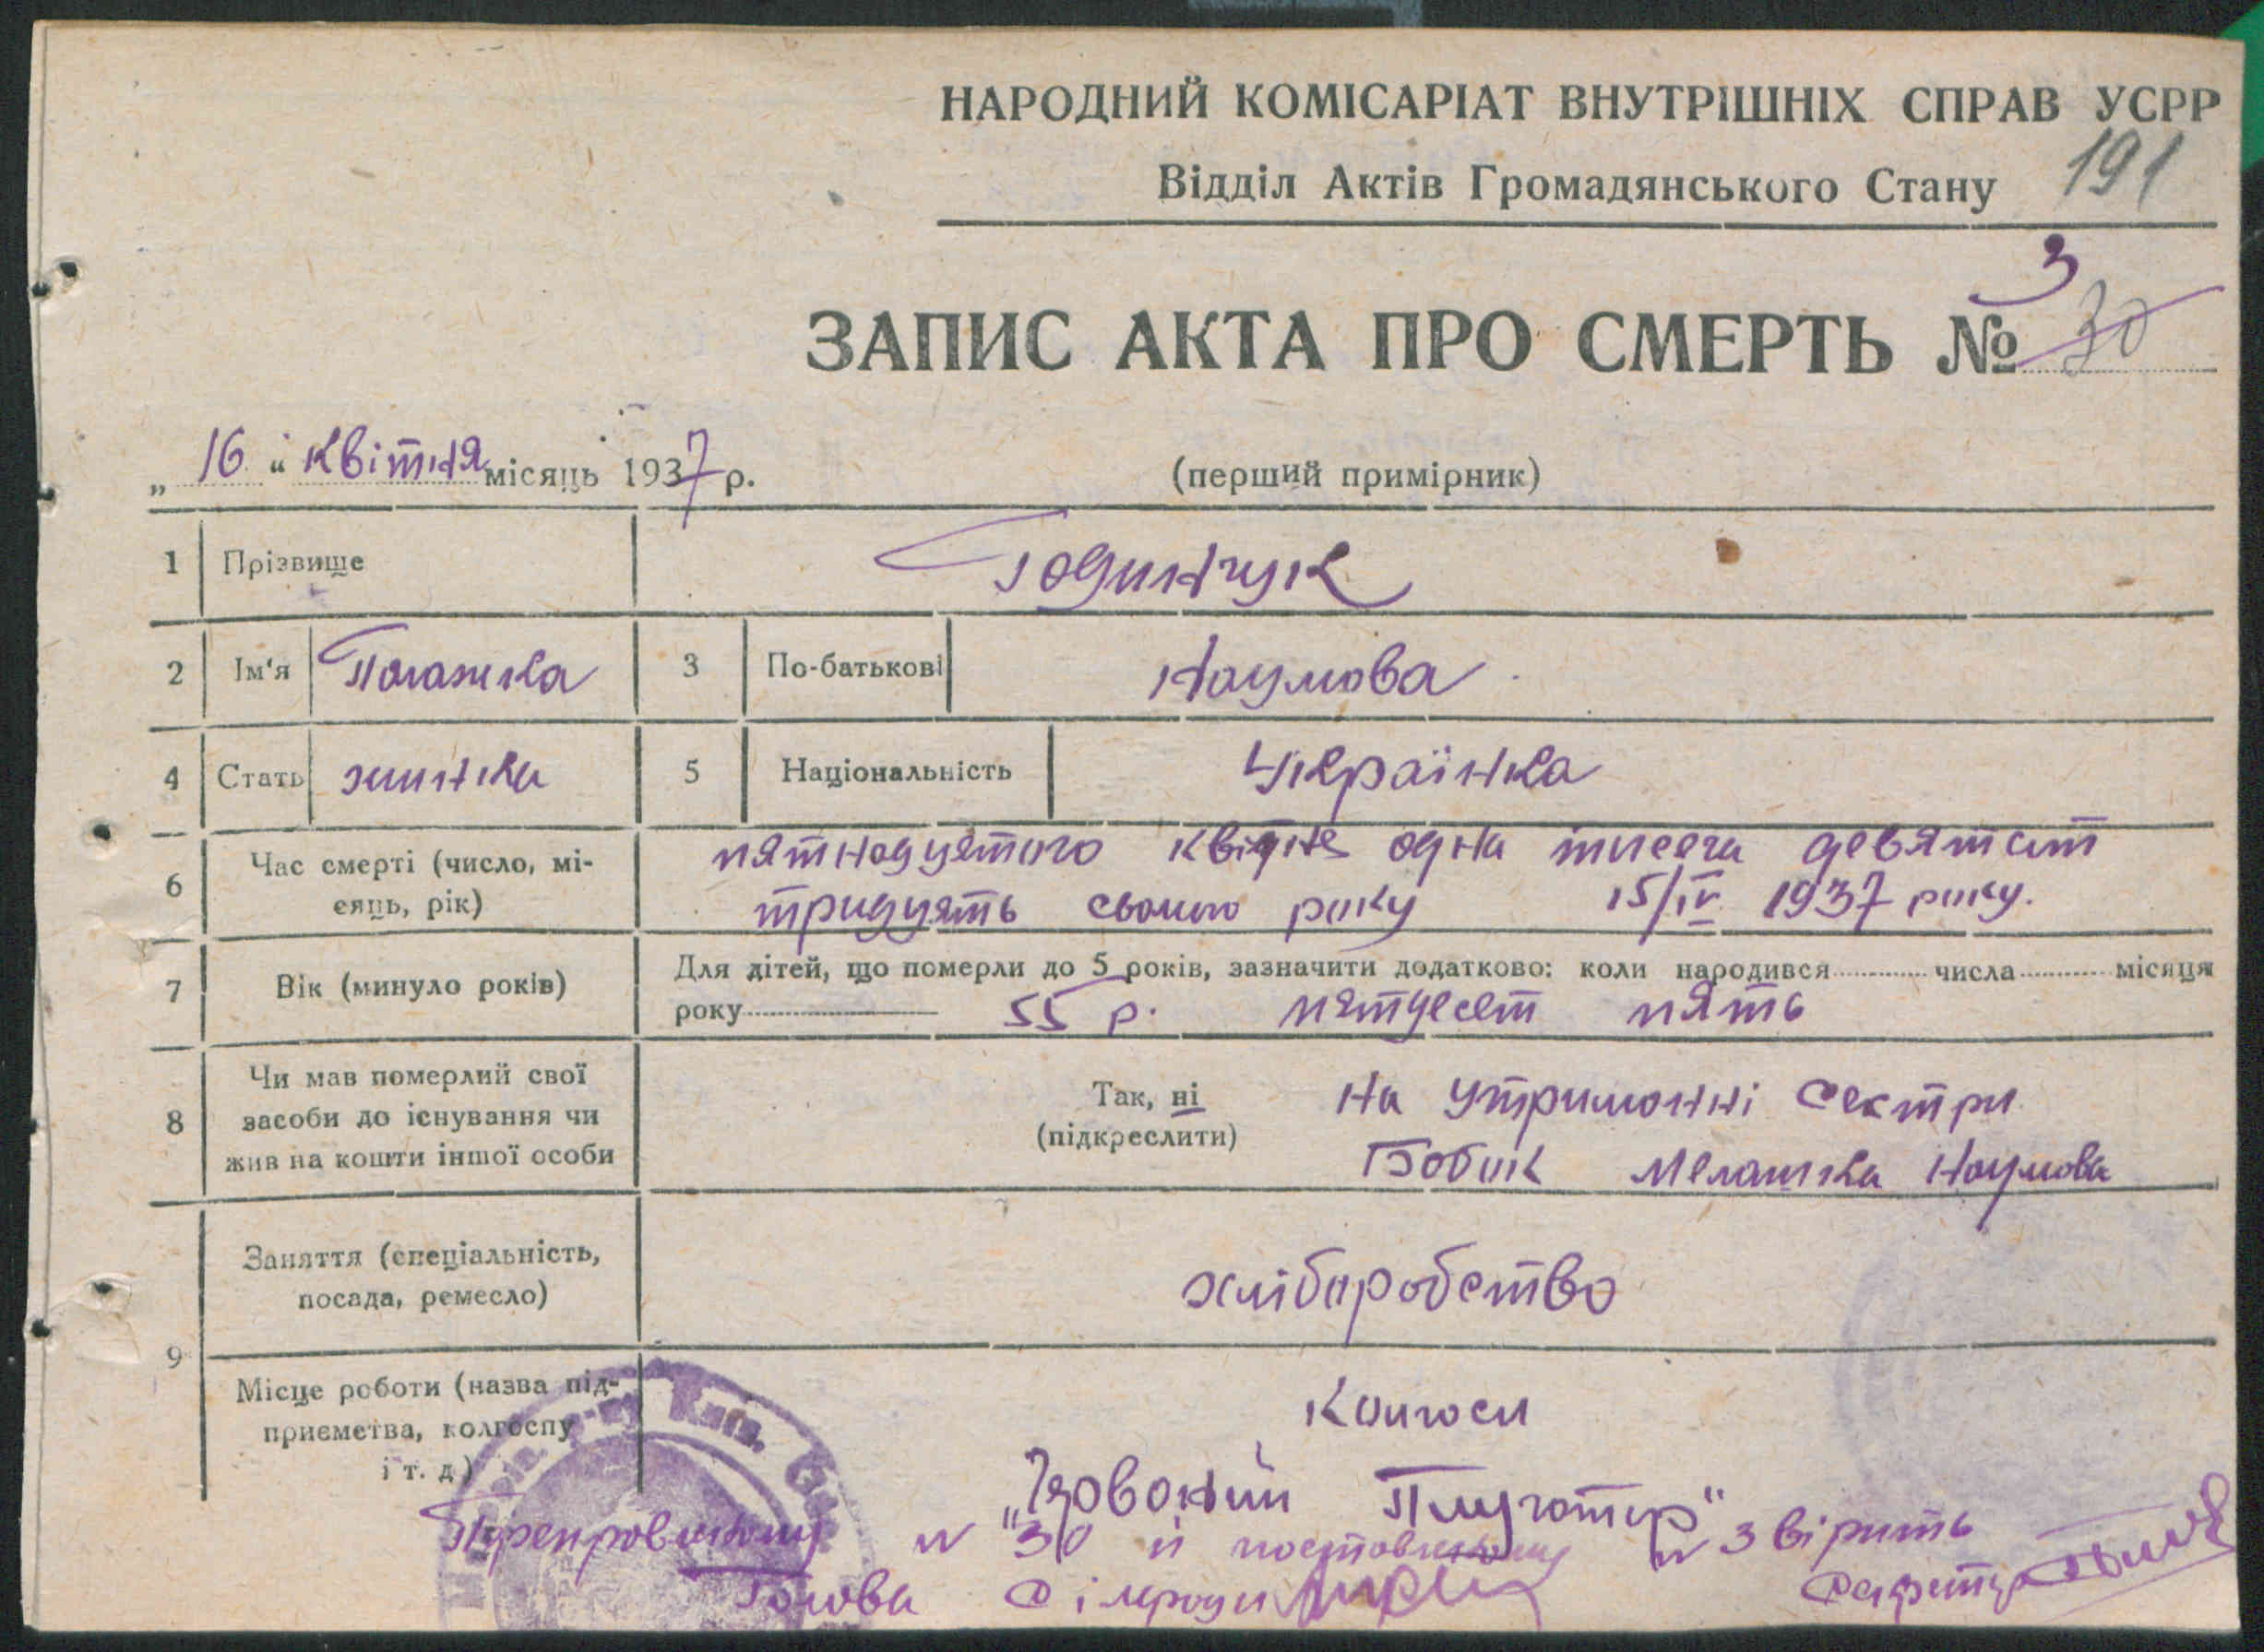 НАРОДНИЙ КОМІСАРІАТ ВНУТРІШНІХ СПРАВ УСРР
Відділ Актів Громадянського Стану 191
3
ЗАПИС АКТА ПРО СМЕРТЬ № 30
„16" квітня місяць 1937 р. (перший примірник)
1 Прізвище Годинчук
2 Ім'я Палажка 3 По-батькові Наумова
4 Стать жинка 5 Національність Українка
6 Час смерті (число, місяць, рік) пятнадцятого квітня одна тисеча девятсот
тридцять сьомого року 15/IV 1937 року.
7 Вік (минуло років) Для дітей, що померли до 5 років, зазначити додатково: коли народився числа місяця
року 55 р. пятдесят пять
8 Чи мав померлий свої
засоби до існування чи
жив на кошти іншої особи
Так, ні
(підкреслити)
на утриманні сестри
Бобик Мелашка Наумова
9 Заняття (спеціальність,
посада, ремесло)
хліборобство
Місце роботи (назва під-
приємства, колгоспу
і т. д.)
Колгосп
"Червоний Плугатар"
№ 30 и поставленому № 3 вірить
Голова сільради Секретар